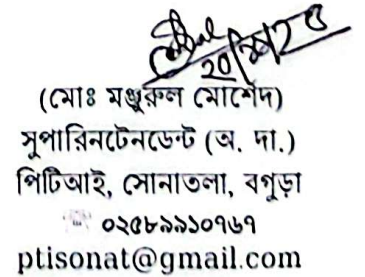 (মোঃ মঞ্জুরুল মোর্শেদ)
সুপারিনটেনডেন্ট (অ. দা.)
পিটিআই, সোনাতলা, বগুড়া
☏ ০২৫৮৯৯১০৭৬৭
ptisonat@gmail.com